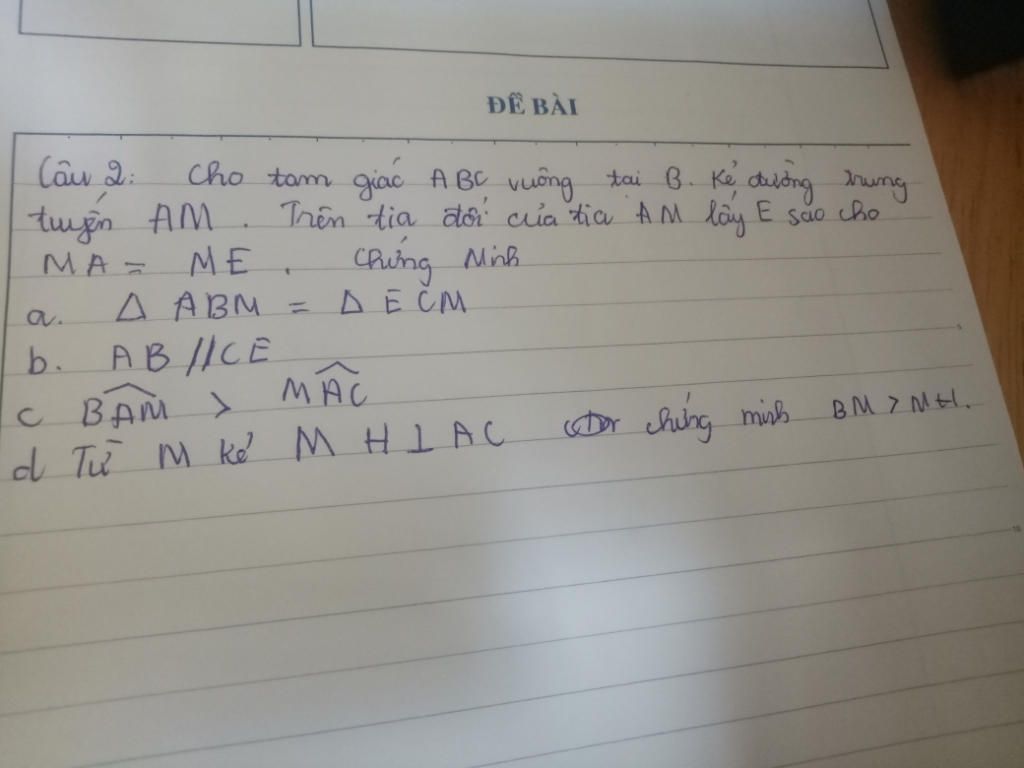 ĐỀ BÀI
Câu 2: Cho tam giác ABC vuông tai B. Kẻ đường trung
tuyến AM. Trên tia đối của tia AM lấy E sao cho
MA = ME. Chứng Minh
a. Δ ABM = Δ ECM
b. AB // CE
c \widehat{BAM} > \widehat{MAC}
d Từ M kẻ MH ⊥ AC chứng minh BM > MH.